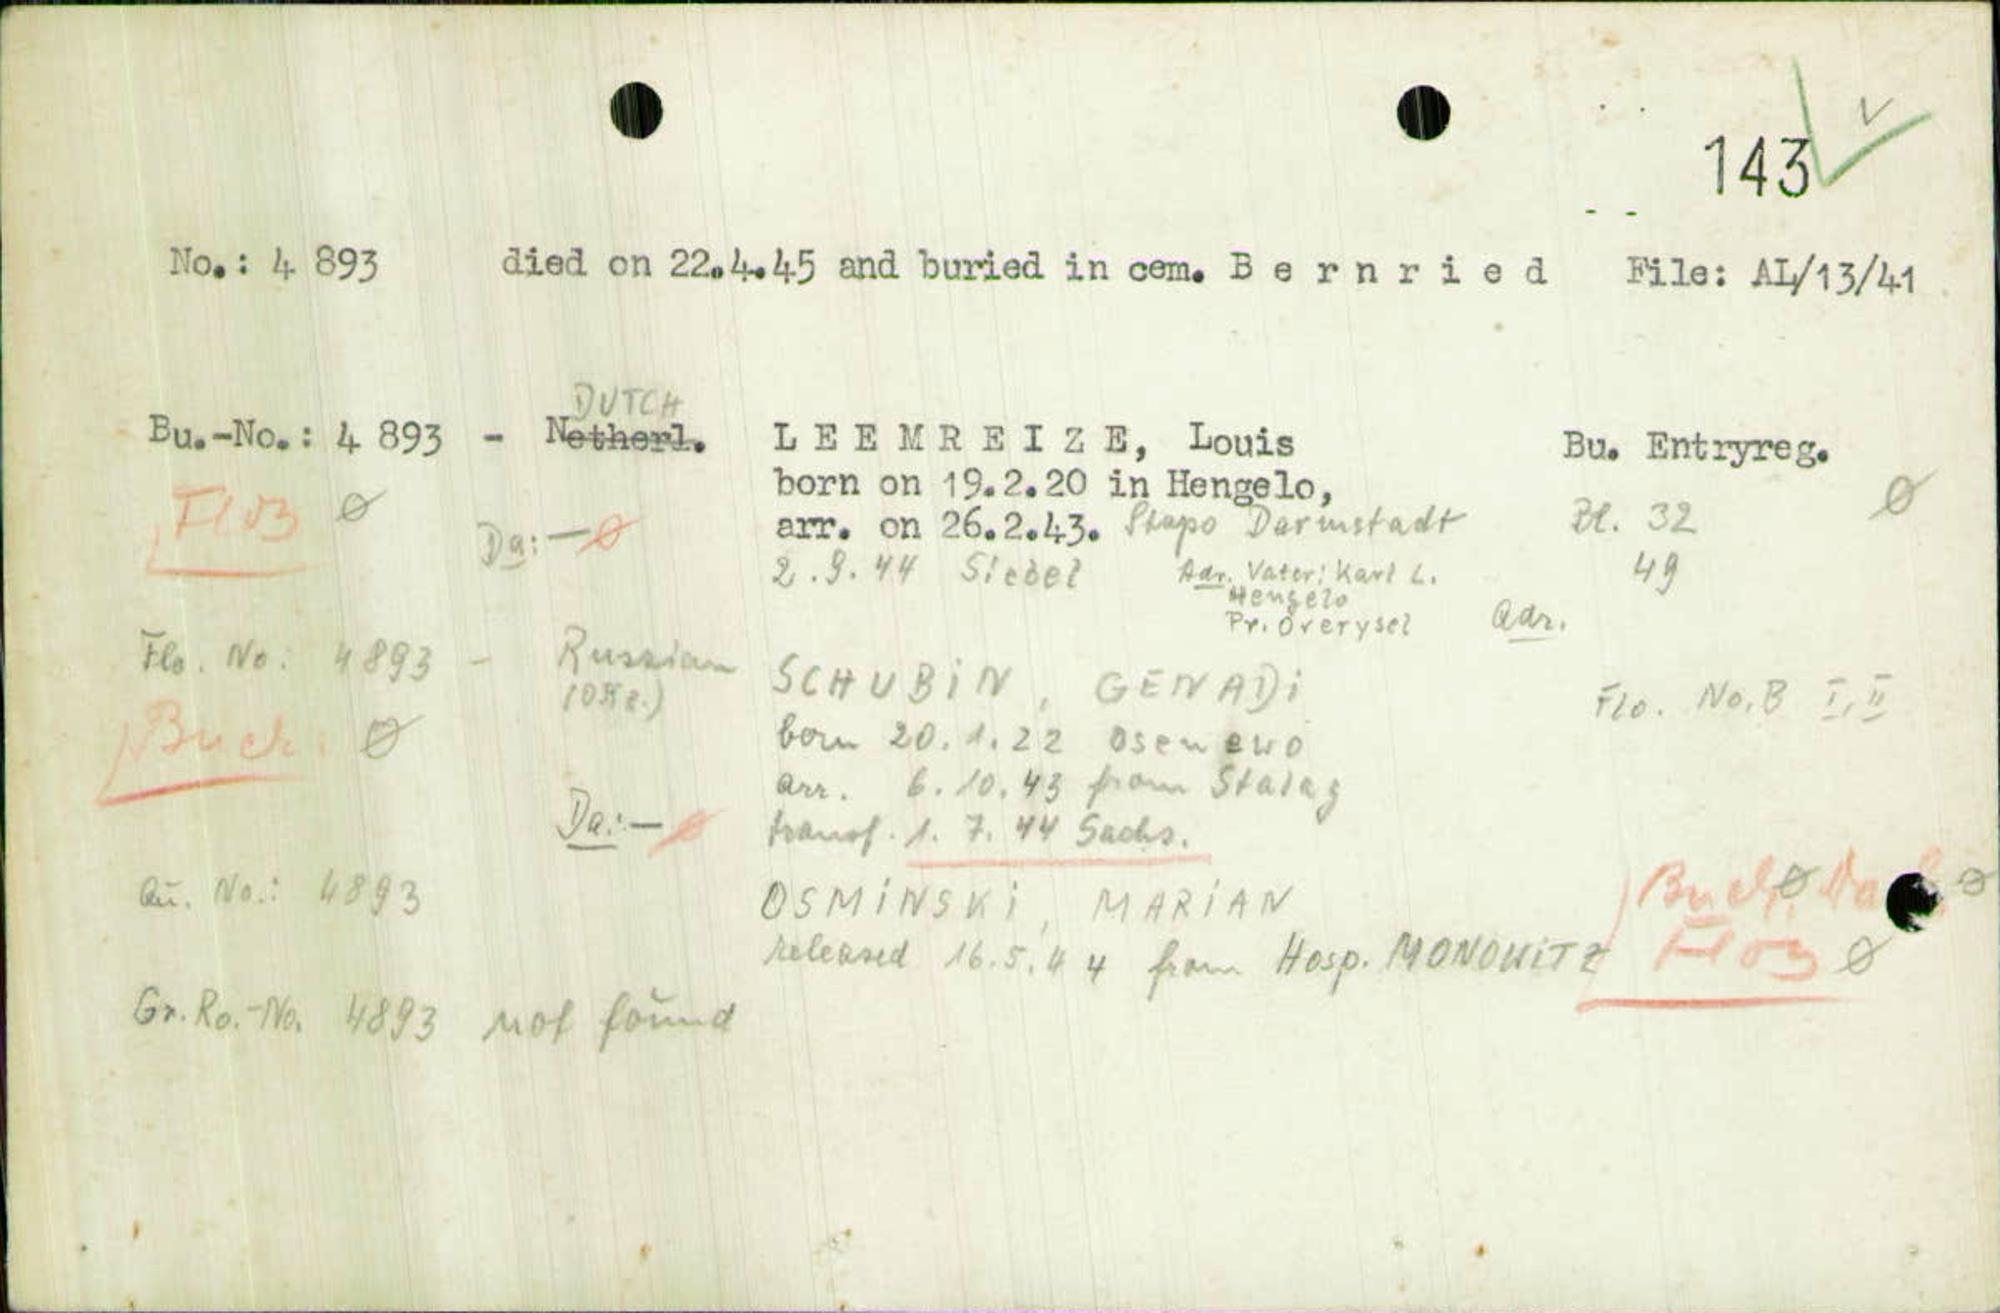 143
No.: 4 893 died on 22.4.45 and buried in cem. B e r n r i e d File: AL/13/41
DUTCH
Bu.-No.: 4 893 - Netherl. L E E M R E I Z E, Louis Bu. Entryreg.
born on 19.2.20 in Hengelo,
Da: - ø arr. on 26.2.43. Stapo Darmstadt Bl. 32 ø
2.9.44 Siebel Adr. Vater: Karl L. 49
Hengelo
Pr. Overysel Adr.
Flo. No: 4893 - Russian SCHUBIN, GENADI Flo. No. B I, II
Buch. ø born 20.1.22 Osenewo
arr. 6.10.43 from Stalag
Da: - ø transf. 1.7.44 Sachs.
Au. No.: 4893 OSMINSKI, MARIAN Buch. ø
released 16.5.44 from Hosp. MONOWITZ
Gr. Ro.-No. 4893 not found